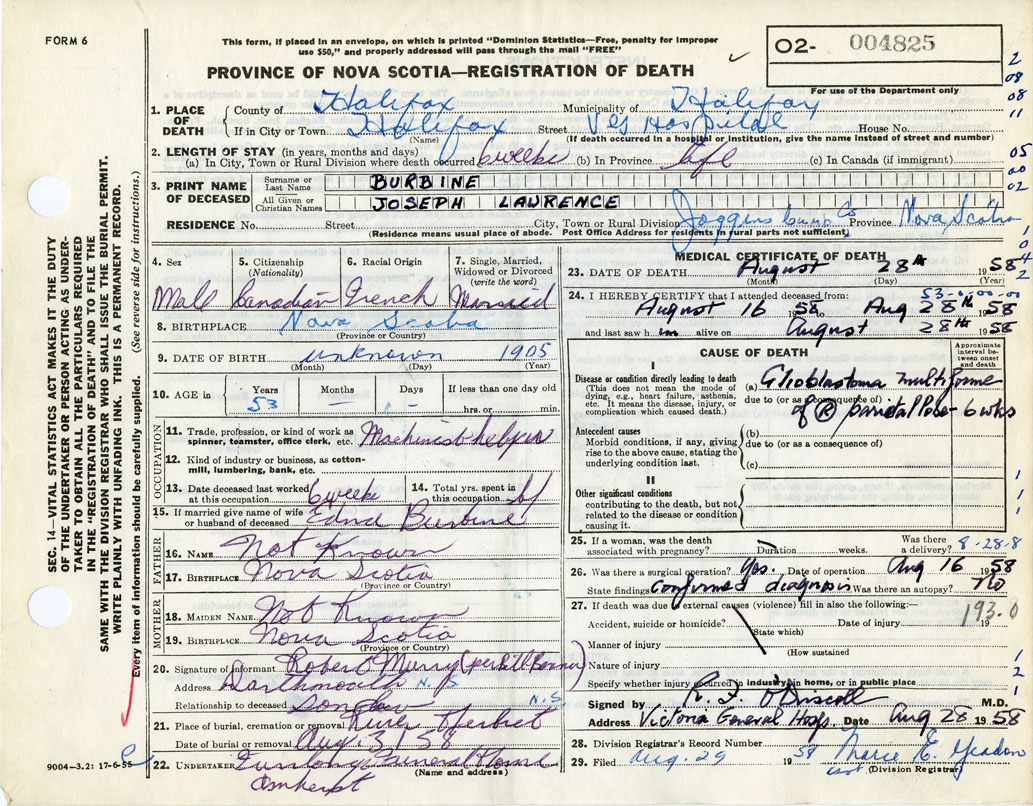 FORM 6
This form, if placed in an envelope, on which is printed "Dominion Statistics—Free, penalty for improper
use $50," and properly addressed will pass through the mail "FREE"
PROVINCE OF NOVA SCOTIA—REGISTRATION OF DEATH
O2- 004825
For use of the Department only
2
08
08
11
05
00
02
1
0
4
2
1. PLACE OF DEATH
County of Halifax Municipality of Halifax
If in City or Town Halifax Street VG Hospital House No.
(Name) (If death occurred in a hospital or institution, give the name instead of street and number)
2. LENGTH OF STAY (in years, months and days)
(a) In City, Town or Rural Division where death occurred 6 weeks (b) In Province Life (c) In Canada (if immigrant)
3. PRINT NAME OF DECEASED
Surname or Last Name BURBINE
All Given or Christian Names JOSEPH LAWRENCE
RESIDENCE No. Street City, Town or Rural Division Joggins Cumb Co Province Nova Scotia
(Residence means usual place of abode. Post Office Address for residents in rural parts not sufficient)
4. Sex
Male
5. Citizenship (Nationality)
Canadian
6. Racial Origin
French
7. Single, Married, Widowed or Divorced (write the word)
Married
8. BIRTHPLACE Nova Scotia
(Province or Country)
9. DATE OF BIRTH unknown 1905
(Month) (Day) (Year)
10. AGE in
Years Months Days If less than one day old
53 — — hrs. or min.
OCCUPATION
11. Trade, profession, or kind of work as
spinner, teamster, office clerk, etc. Machinist helper
12. Kind of industry or business, as cotton-
mill, lumbering, bank, etc.
13. Date deceased last worked at this occupation 6 weeks
14. Total yrs. spent in this occupation
15. If married give name of wife
or husband of deceased Edna Burbine
FATHER
16. NAME Not Known
17. BIRTHPLACE Nova Scotia
(Province or Country)
MOTHER
18. MAIDEN NAME Not Known
19. BIRTHPLACE Nova Scotia
(Province or Country)
20. Signature of informant Robert Murry (per Bill Bonner)
Address Dartmouth N.S
Relationship to deceased Son law N.S.
21. Place of burial, cremation or removal River Hebert
Date of burial or removal Aug. 31/58
22. UNDERTAKER Funeral Home
(Name and address)
Amherst
9004—3.2: 17-6-55
MEDICAL CERTIFICATE OF DEATH
23. DATE OF DEATH August 28th 1958
(Month) (Day) (Year)
24. I HEREBY CERTIFY that I attended deceased from: 53-0-00-00
August 16 1958 to Aug 28th 1958
and last saw him alive on August 28th 1958
CAUSE OF DEATH
Approximate interval between onset and death
I
Disease or condition directly leading to death (a) Glioblastoma multiforme
(This does not mean the mode of dying, e.g., heart failure, asthenia, etc. It means the disease, injury, or complication which caused death.)
due to (or as a consequence of)
of (R) parietal lobe - 6 wks
Antecedent causes
Morbid conditions, if any, giving rise to the above cause, stating the underlying condition last.
(b)
due to (or as a consequence of)
(c)
II
Other significant conditions
contributing to the death, but not related to the disease or condition causing it.
1
1
1
25. If a woman, was the death
associated with pregnancy? Duration weeks. Was there a delivery? 8-28-8
26. Was there a surgical operation? Yes. Date of operation Aug 16 1958
State findings Confirmed diagnosis Was there an autopsy? No
27. If death was due to external causes (violence) fill in also the following:—
193.0
Accident, suicide or homicide? Date of injury 19
(State which)
Manner of injury
(How sustained
Nature of injury
Specify whether injury occurred in industry, in home, or in public place
1
2
1
Signed by R. F. O'Driscoll M.D.
Address Victoria General Hosp. Date Aug 28 1958
28. Division Registrar's Record Number
29. Filed Aug. 29 1958 Marie E. Yeadon
(Division Registrar)
SEC. 14—VITAL STATISTICS ACT MAKES IT THE DUTY
OF THE UNDERTAKER OR PERSON ACTING AS UNDER-
TAKER TO OBTAIN ALL THE PARTICULARS REQUIRED
IN THE "REGISTRATION OF DEATH" AND TO FILE THE
SAME WITH THE DIVISION REGISTRAR WHO SHALL ISSUE THE BURIAL PERMIT.
WRITE PLAINLY WITH UNFADING INK. THIS IS A PERMANENT RECORD.
Every item of information should be carefully supplied. (See reverse side for instructions.)